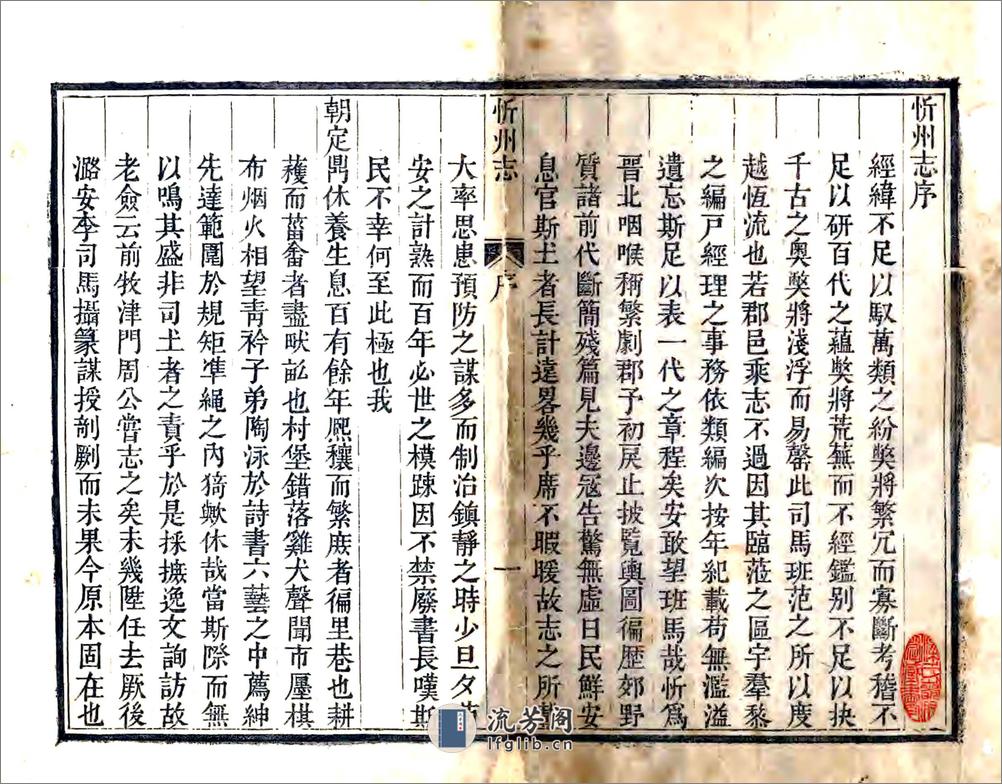 忻州志序
經緯不足以馭萬類之紛獘將繁冗而寡斷考稽不
足以研百代之蘊獘將荒蕪而不經鑑别不足以抉
千古之奥獘將淺浮而易罄此司馬班范之所以度
越恆流也若郡邑乘志不過因其臨蒞之區宇羣黎
之編戸經理之事務依類編次按年紀載苟無濫溢
遺忘斯足以表一代之章程矣安敢望班馬哉忻爲
晉北咽喉稱繁劇郡予初戾止披覧輿圖徧歴郊野
質諸前代斷簡殘篇見夫邊冦告驚無虛日民鮮安
息官斯土者長計逺畧幾乎席不暇暖故志之所
忻州志
序
一
大率思患預防之謀多而制冶鎮靜之時少旦夕
安之計熟而百年必世之模踈因不禁廢書長嘆斯
民不幸何至此極也我
朝定鼎休養生息百有餘年熈穰而繁庶者徧里巷也耕
穫而菑畬者盡畎畝也村堡錯落雞犬聲聞市廛棋
布烟火相望靑衿子弟陶泳於詩書六藝之中薦紳
先達範圍於規矩凖繩之內猗歟休哉當斯際而無
以鳴其盛非司土者之責乎於是採摭逸文詢訪故
老僉云前牧津門周公嘗志之矣未幾陞任去厥後
潞安李司馬攝篆謀授剞劂而未果今原本固在也
流芳阁
lfglib.cn